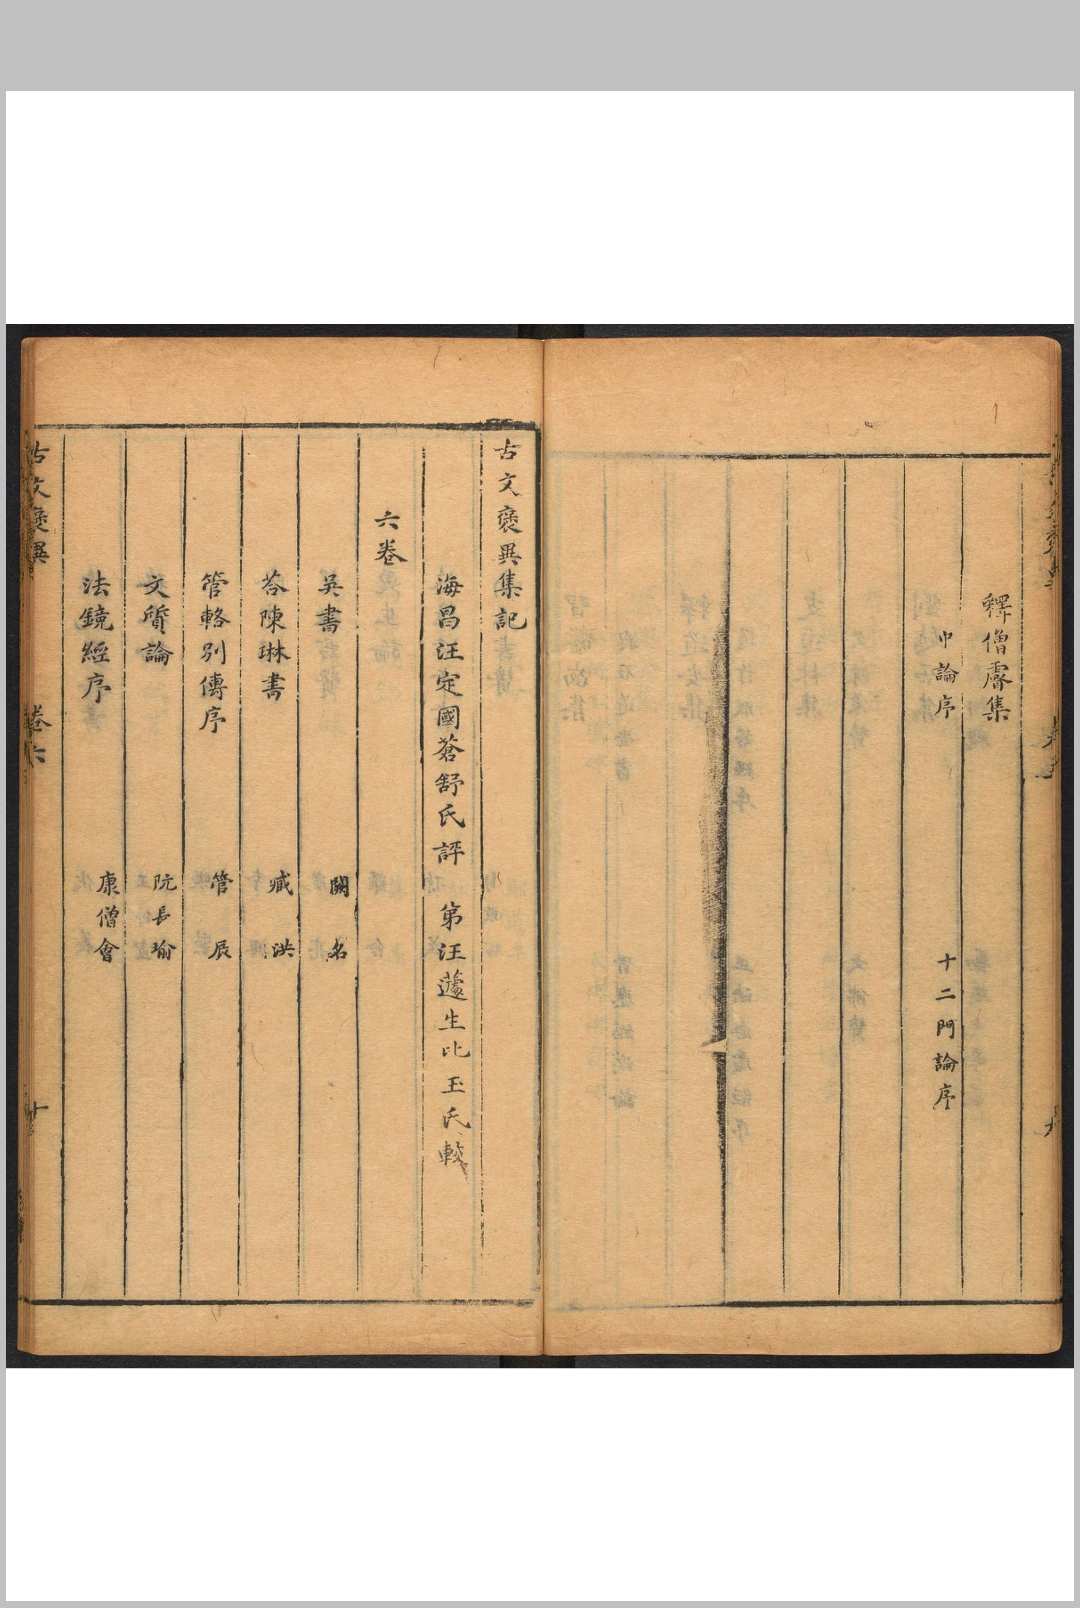 釋僧叡集
中論序　十二門論序
古文褒異集記
海昌汪定國蒼舒氏評　第汪蘧生比玉氏較
六卷
吳書　闕名
荅陳琳書　臧洪
管輅別傳序　管辰
文質論　阮長瑜
法鏡經序　康僧會
古文褒異　卷六　十